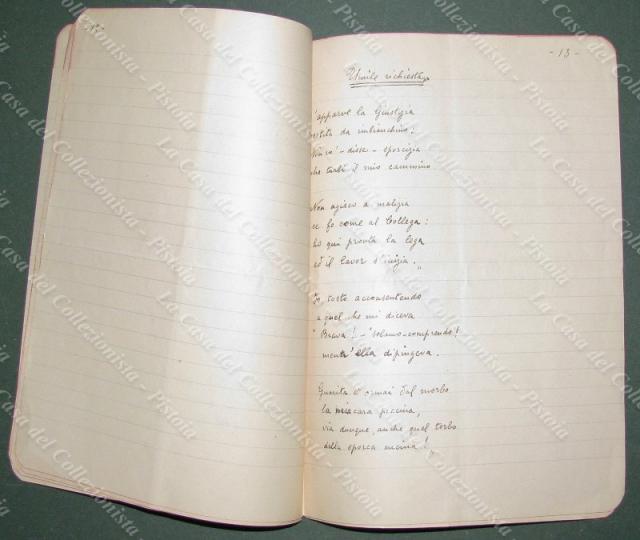 - 13 -
Umile richiesta
apparve la Giustizia
vestita da imbianchino:
disse - sporcizia
che turbi il mio cammino
Non agisco a malizia
se fo come al Collega:
ho qui pronta la lega
ed il lavor s'inizia."
Io tosto acconsentendo
a quel che mi diceva
" Brava! - esclamo - comprendo!
mentr'ella dipingeva.
Guarita è ormai dal morbo
la mia cara piccina,
via dunque, anche quel torbo
della sporca cucina!"
La Casa del Collezionista - Pistoia